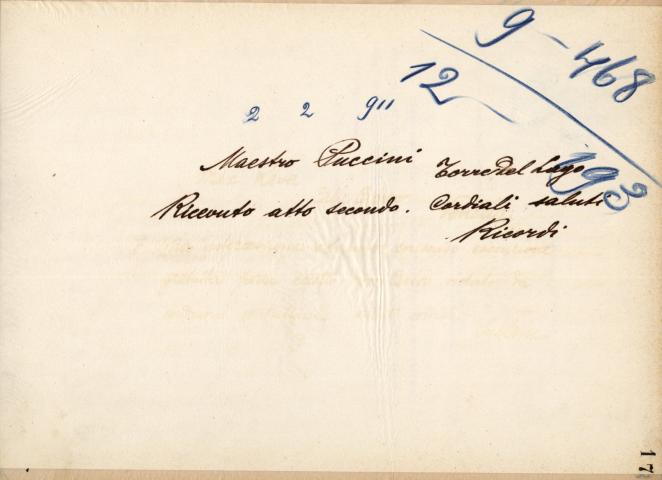 9 - 468
12
193
2 2 911
Maestro Puccini Torre del Lago
Ricevuto atto secondo. Cordiali saluti
Ricordi
17